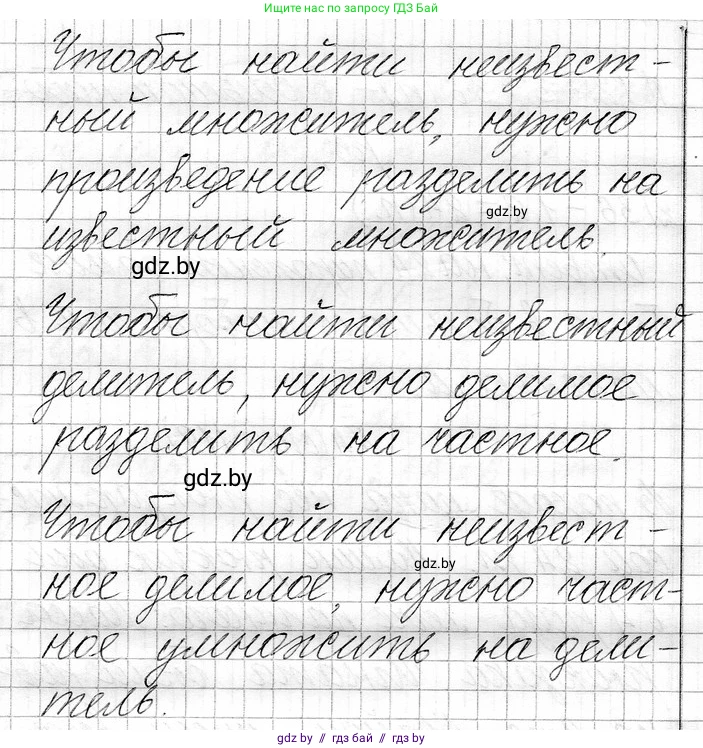 Ищите нас по запросу ГДЗ Бай
Чтобы найти неизвест-
ный множитель, нужно
произведение разделить на
gdz.by
известный множитель.
gdz.by
Чтобы найти неизвестный
делитель, нужно делимое
разделить на частное.
gdz.by
Чтобы найти неизвест-
gdz.by
ное делимое, нужно част-
ное умножить на дели-
тель.
gdz.by // гдз бай // gdz.by